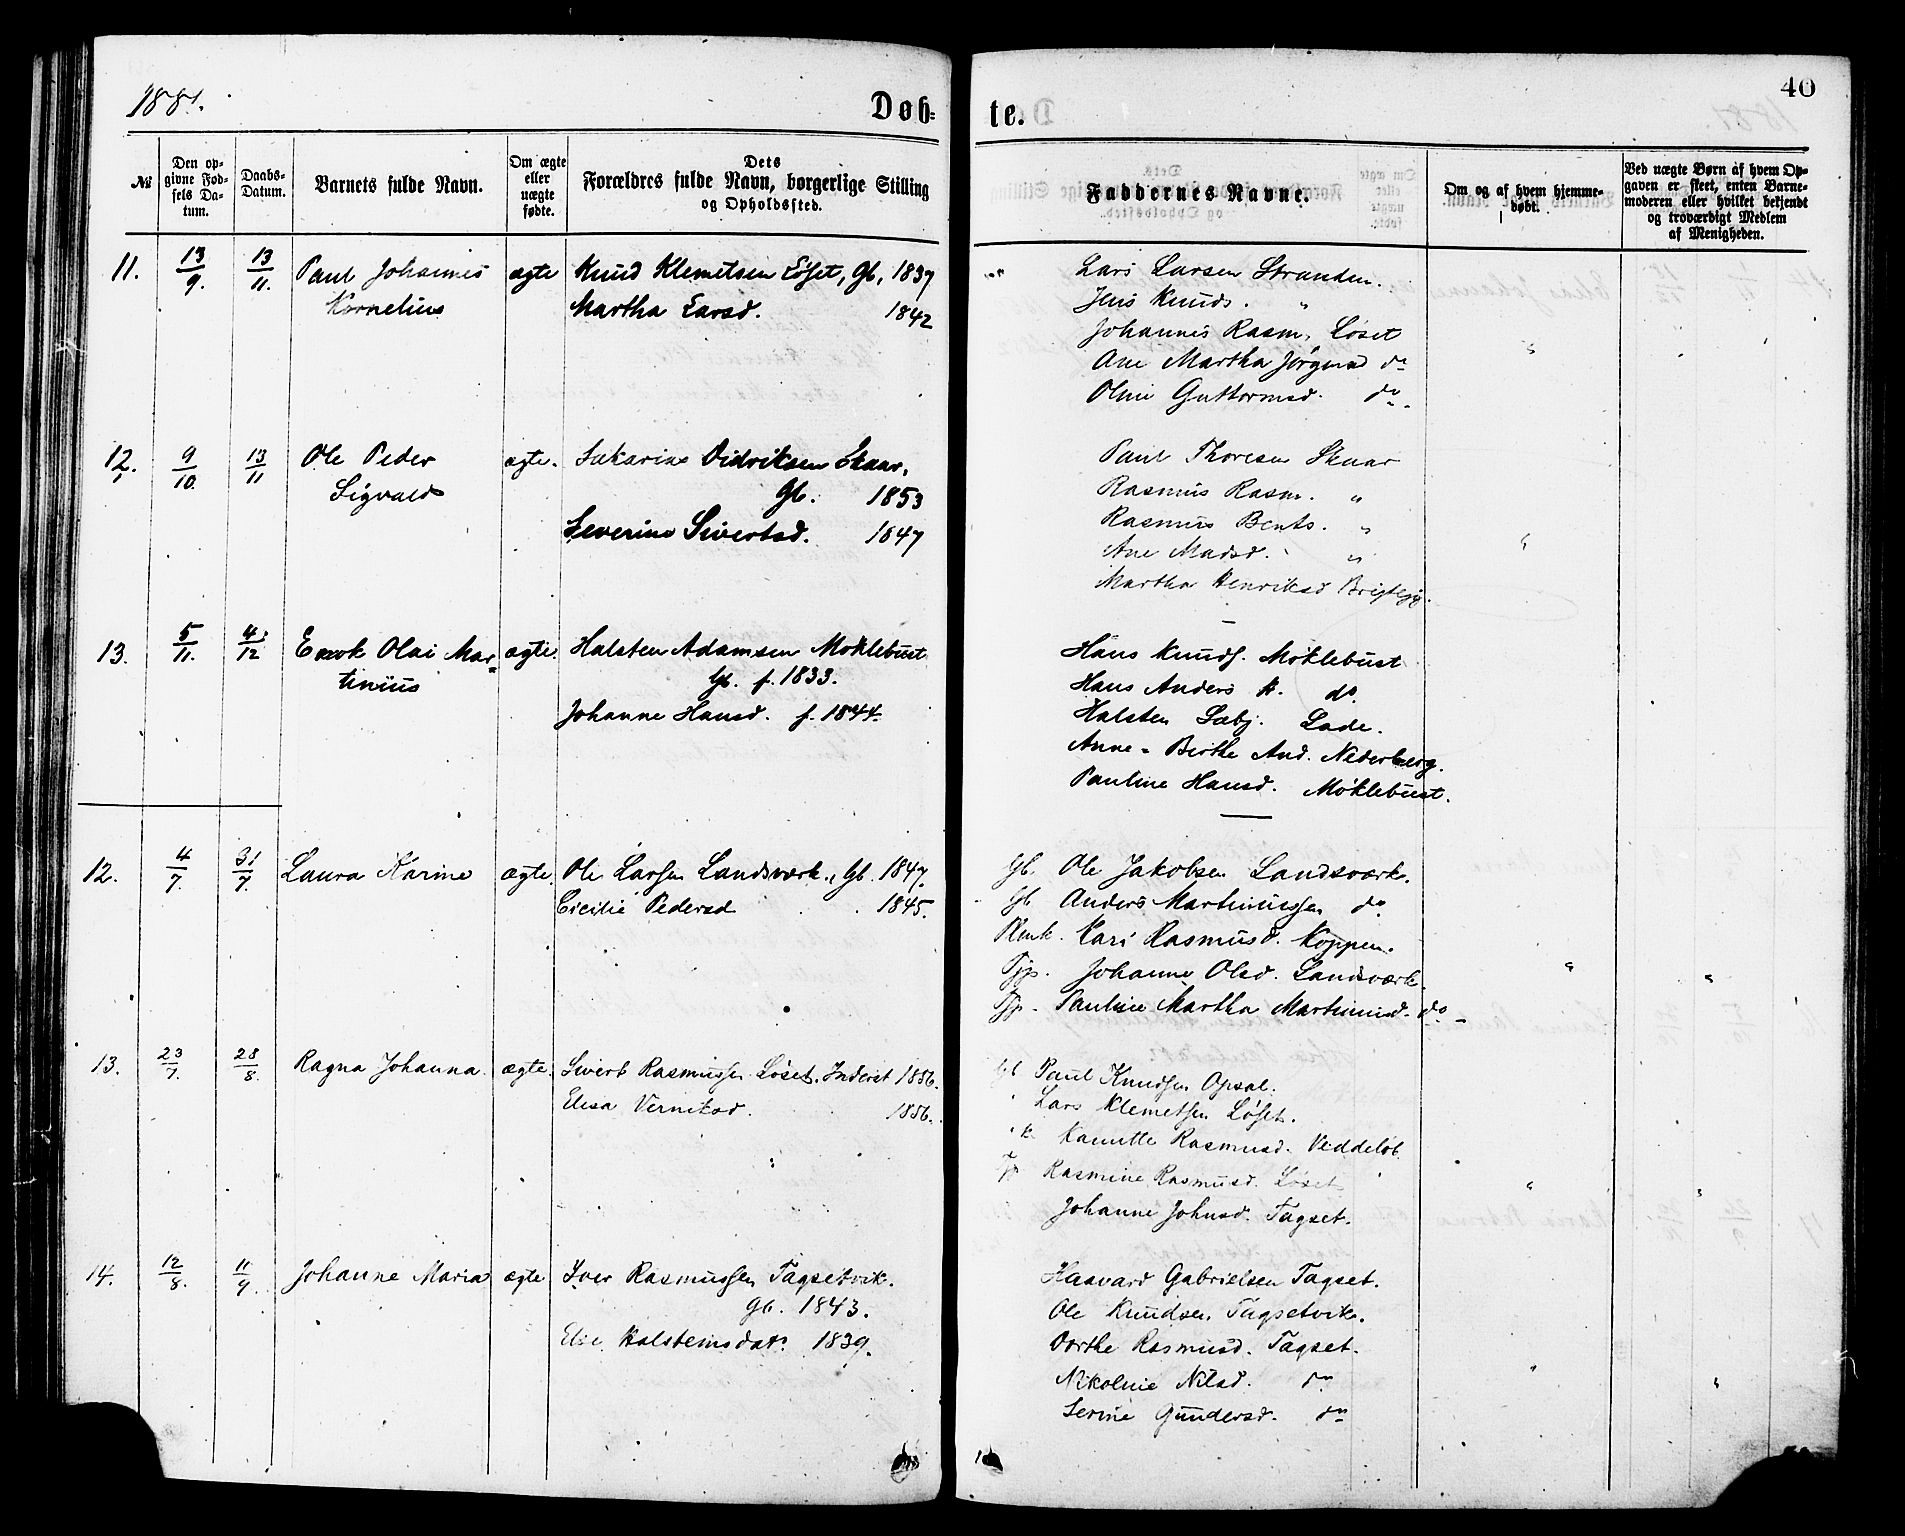 1881.
Døb=
te.
40
№
Den opgivne Fødsels Datum.
Daabs-Datum.
Barnets fulde Navn.
Om ægte eller uægte fødte.
Dets Forældres fulde Navn, borgerlige Stilling og Opholdssted.
Faddernes Navne.
Om og af hvem hjemmedøbt.
Ved uægte Børn af hvem Opgaven er skeet, enten Barnemoderen eller hvilket bekjendt og troværdigt Medlem af Menigheden.
11. 13/9. 13/11. Paul Johannes ægte Knud Klemetsen Løset, Gb, 1837
Kornelius Martha Larsd. 1842
Lars Larsen Stranden.
Jens Knuds. "
Johannes Rasm. Løset
Ane Martha Jørgensd do
Oline Guttormsd. do.
12. 9/10. 13/11 Ole Peder ægte. Sakarias Didriksen Skaar,
Sigvald Gb. 1853
Severine Sivertsd. 1847
Paul Thoresen Skaar
Rasmus Rasm. "
Rasmus Bents. "
Ane Madsd. "
Martha Henriksd
13. 5/11. 4/12 Enok Olai Mar- ægte. Halsten Adamsen Moklebust
tinius Gb. f. 1833.
Johanne Hansd. f. 1844.
Hans Knuds. Møklebust
Hans Anders K. do.
Halsten Lade.
Anne-Birthe And. Nederberg.
Pauline Hansd. Møklebust.
12. 4/7. 31/7. Laura Karine ægte. Ole Larsen Landsværk, Gb. 1847.
Cicilie Pedersd 1845.
Gb. Ole Jakobsen Landsværk.
Gb Anders Martinussen do
Kari Rasmusd. Koppen.
Pjp. Johanne Olsd. Landsværk.
Pjp. Pauline Martha Martinusd. do
13. 23/7. 28/8. Ragna Johanna. ægte. Sivert Rasmussen Løset. Inderst 1856.
Elisa Verniksd. 1856.
Gb Paul Knudsen Opsal.
Lars Klemetsen Løset.
K. Kamille Rasmusd. Veddeløb
Pjp Rasmine Rasmusd. Løset
Johanne Johnsd. Tagset.
14. 12/8. 11/9. Johanne Maria ægte Iver Rasmussen Tagsetvik.
Gb. 1843.
Else Halsteinsdatr 1839.
Haavard Gabrielsen Tagset.
Ole Knudsen, Tagsetvik.
Dorthe Rasmusd. Tagset.
Nikoline Nilsd. do
Serine Gundersd. do